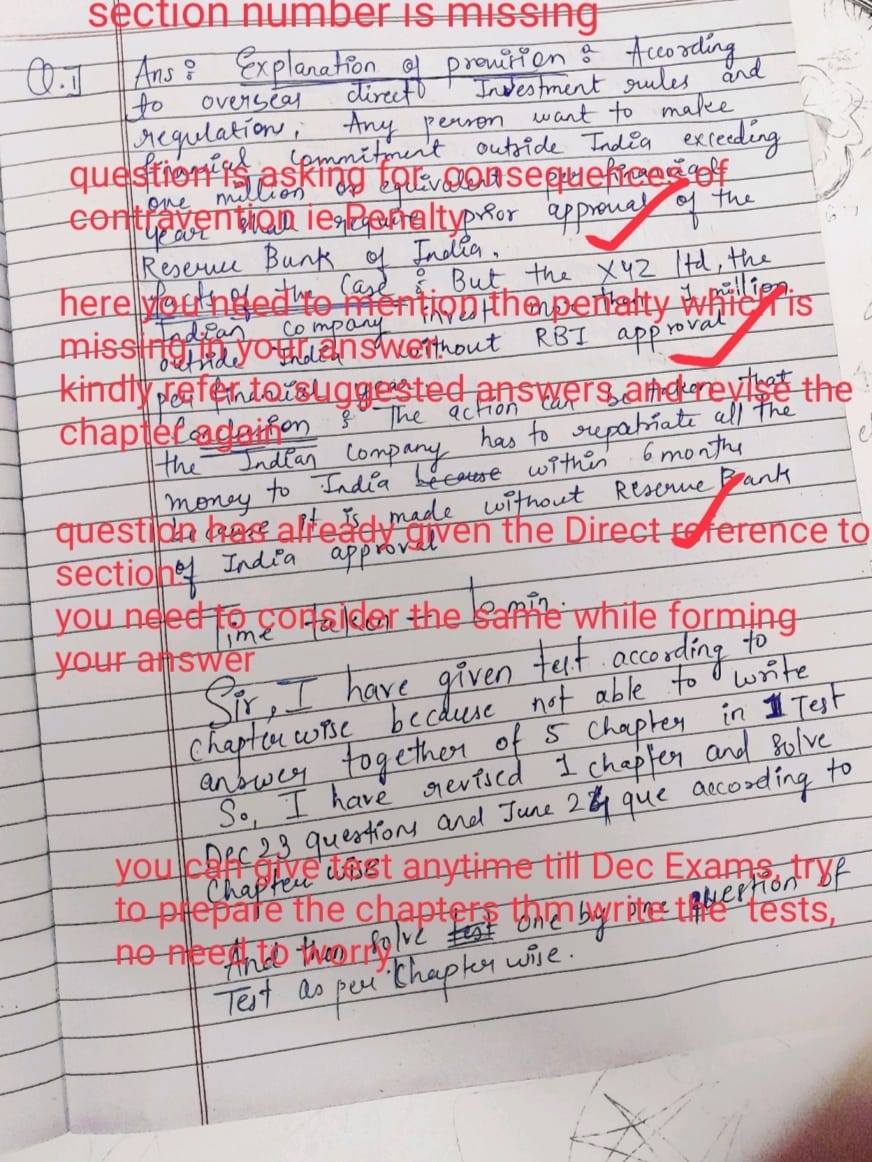 section number is missing
Q.1 Ans : Explanation of provision : According
to overseas direct Investment rules and
regulation, Any person want to make
commitment outside India exceeding
question is asking for consequences of
one million or equivalent
contravention ie Penalty
year shall require prior approval of the
Reserve Bank of India.
facts of the Case : But the XYZ ltd, the
here you need to mention the penalty which is
Indian Company invest more than 1 million
missing in your answer.
outside India without RBI approval
kindly refer to suggested answers and revise the
per financial year.
chapter again
The action can be taken that
the Indian Company has to repatriate all the
money to India because within 6 months
because it is made without Reserve Bank
question has already given the Direct reference to
section
of India approval
you need to consider the same while forming
Time taken - min.
your answer
Sir, I have given test according to
chapter wise because not able to write
answer together of 5 Chapter in 1 Test
So, I have revised 1 chapter and solve
Dec 23 questions and June 24 que according to
Chapter wise
you can give test anytime till Dec Exams, try
to prepare the chapters thm write the tests,
And then solve test one by one question of
no need to worry
Test as per Chapter wise.